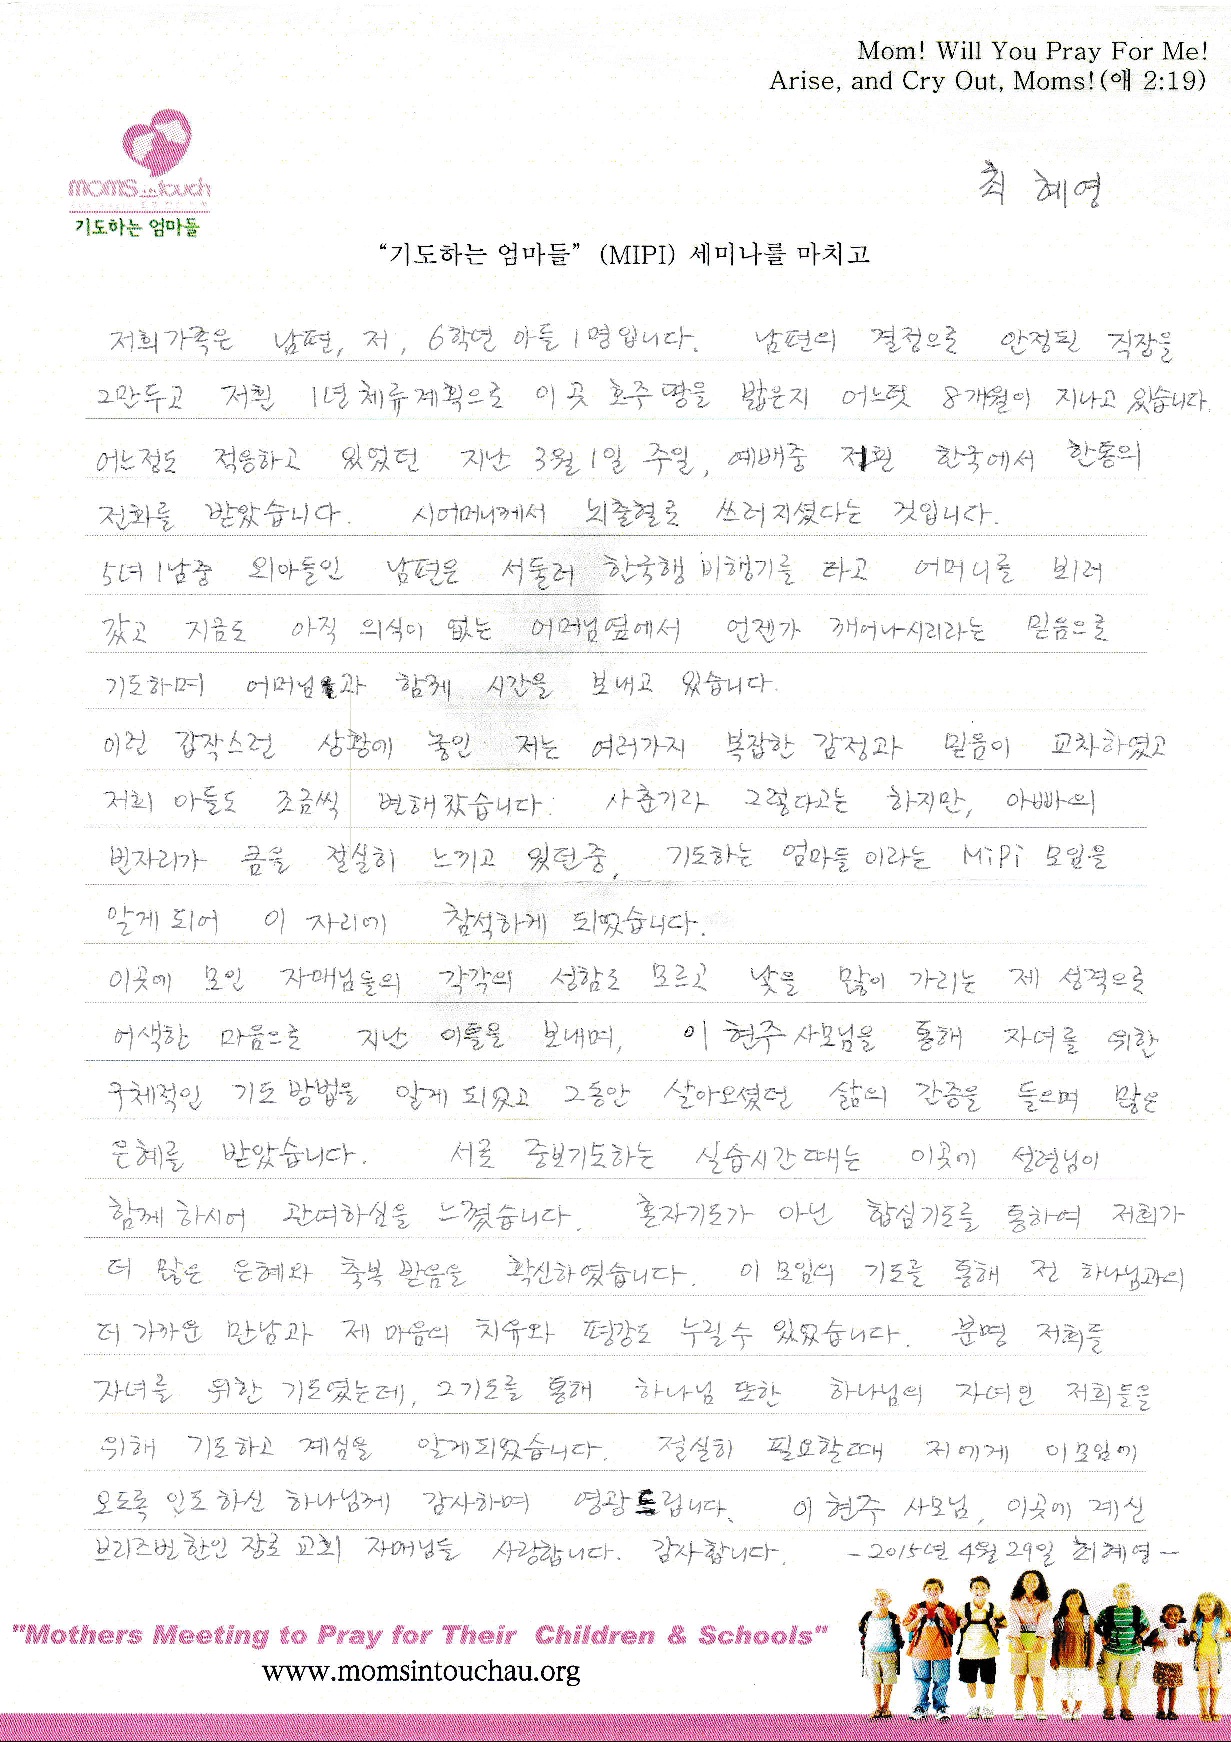 Mom! Will You Pray For Me!
Arise, and Cry Out, Moms!(애 2:19)
moms in touch
기도하는 엄마들
최 혜영
“기도하는 엄마들” (MIPI) 세미나를 마치고
저희가족은 남편, 저, 6학년 아들 1명입니다. 남편의 결정으로 안정된 직장을
그만두고 저흰 1년 체류계획으로 이 곳 호주 땅을 밟은지 어느텃 8개월이 지나고 있습니다.
어느정도 적응하고 있었던 지난 3월 1일 주일, 예배중 저흰 한국에서 한통의
전화를 받았습니다. 시어머니께서 뇌출혈로 쓰러지셨다는 것입니다.
5녀 1남중 외아들인 남편은 서둘러 한국행 비행기를 타고 어머니를 뵈러
갔고 지금도 아직 의식이 없는 어머님옆에서 언젠가 깨어나시리라는 믿음으로
기도하며 어머님과 함께 시간을 보내고 있습니다.
이런 갑작스런 상황에 놓인 저는 여러가지 복잡한 감정과 믿음이 교차하였고
저희 아들도 조금씩 변해갔습니다. 사춘기라 그렇다고는 하지만, 아빠의
빈자리가 큼을 절실히 느끼고 있던중, 기도하는 엄마들 이라는 MiPi 모임을
알게 되어 이 자리에 참석하게 되었습니다.
이곳에 모인 자매님들의 각각의 성함도 모르고 낯을 많이 가리는 제 성격으로
어색한 마음으로 지난 이틀을 보내며, 이 현주 사모님을 통해 자녀를 위한
구체적인 기도 방법을 알게 되었고 그동안 살아오셨던 삶의 간증을 들으며 많은
은혜를 받았습니다. 서로 중보기도하는 실습시간 때는 이곳에 성령님이
함께 하시어 관여하심을 느꼈습니다. 혼자기도가 아닌 합심기도를 통하여 저희가
더 많은 은혜와 축복 받음을 확신하였습니다. 이 모임의 기도를 통해 전 하나님과의
더 가까운 만남과 제 마음의 치유와 평강도 누릴수 있었습니다. 분명 저희들
자녀를 위한 기도였는데, 그기도를 통해 하나님 또한 하나님의 자녀인 저희들을
위해 기도하고 계심을 알게되었습니다. 절실히 필요할때 저에게 이모임에
오도록 인도 하신 하나님께 감사하며 영광 드립니다. 이 현주 사모님, 이곳에 계신
브리즈번 한인 장로 교회 자매님들 사랑합니다. 감사합니다. -2015년 4월 29일 최혜영-
"Mothers Meeting to Pray for Their Children & Schools"
www.momsintouchau.org